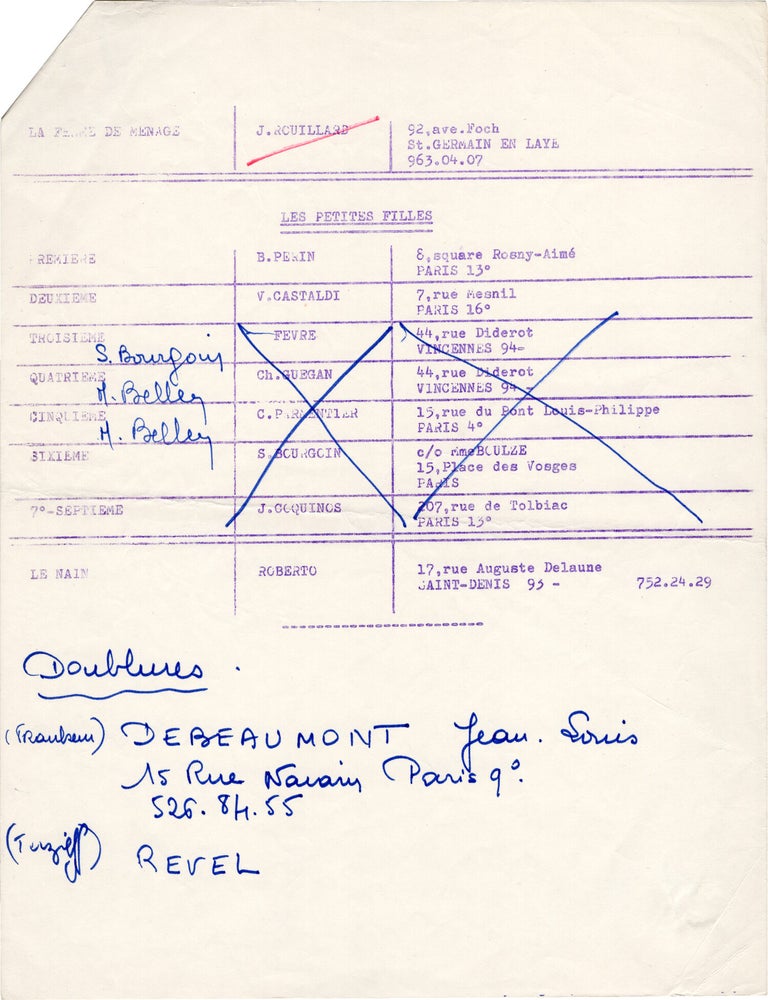 LA FEMME DE MENAGE J.ROUILLARD 92,ave.Foch
St.GERMAIN EN LAYE
963.04.07
LES PETITES FILLES
PREMIERE B.PERIN 8,square Rosny-Aimé
PARIS 13°
DEUXIEME V.CASTALDI 7,rue Mesnil
PARIS 16°
TROISIEME FEVRE 44,rue Diderot
S. Bourgoin VINCENNES 94-
QUATRIEME Ch.GUEGAN 44,rue Diderot
M. Belley VINCENNES 94-
CINQUIEME C.PARMENTIER 15,rue du Pont Louis-Philippe
M. Belley PARIS 4°
SIXIEME S.BOURGOIN c/o MmeBOULZE
15,Place des Vosges
PARIS
7°-SEPTIEME J.COQUINOS 207,rue de Tolbiac
PARIS 13°
LE NAIN ROBERTO 17,rue Auguste Delaune
SAINT-DENIS 93 - 752.24.29
Doublures .
DEBEAUMONT Jean. Louis
15 Rue Navarin Paris 9°.
526.84.55
(Terzieff) REVEL